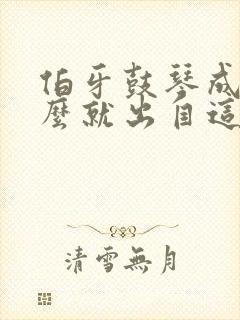 伯牙鼓琴成
麼就出自這
清雪無月